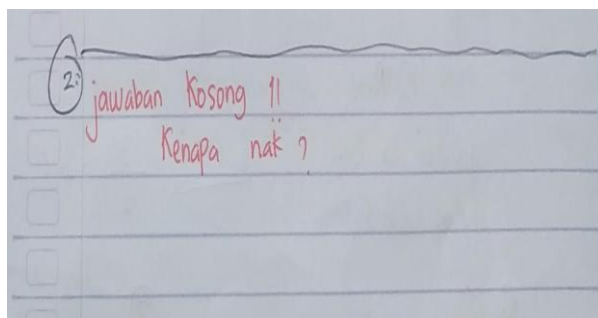 2. jawaban Kosong !!
Kenapa nak ?